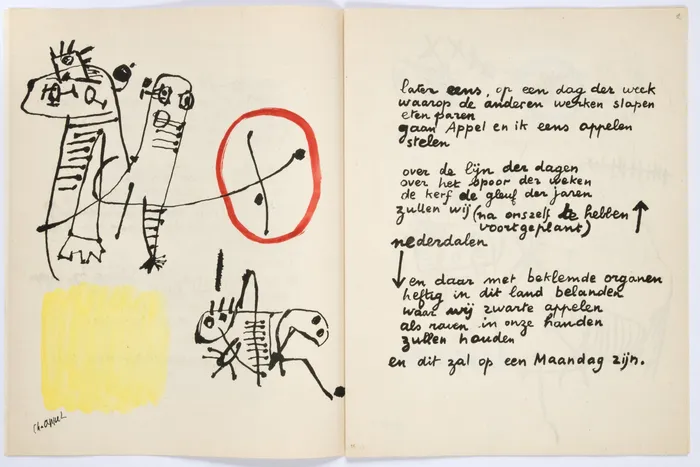 ck. appel
later eens, op een dag der week
waarop de anderen werken slapen
eten paren
gaan Appel en ik eens appelen
stelen
over de lijn der dagen
over het spoor der weken
de kerf de gleuf der jaren
zullen wij (na onszelf te hebben
voortgeplant)
nederdalen
en daar met beklemde organen
heftig in dit land belanden
waar wij zwarte appelen
als raven in onze handen
zullen houden
en dit zal op een Maandag zijn.